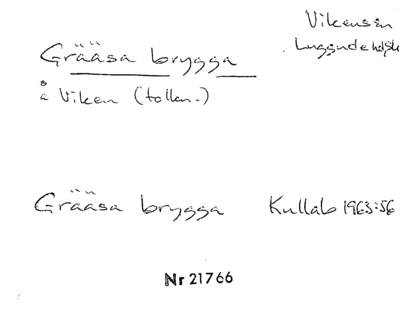 Vikens sn
Luggude hd
Grääsa brygga
å Viken
Grääsa brygga Kullab 1963:56
Nr 21766